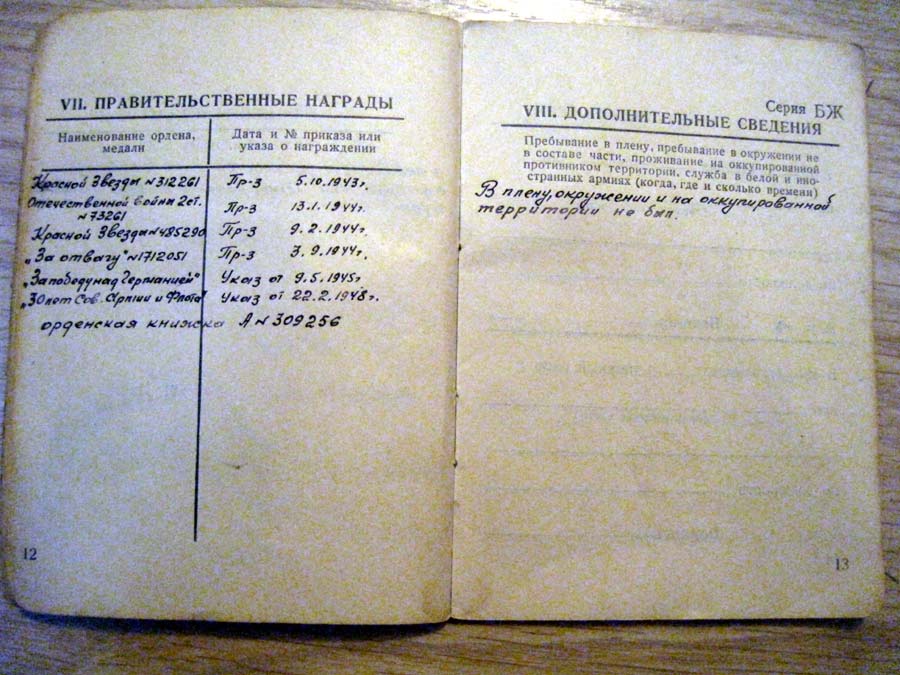 VII. ПРАВИТЕЛЬСТВЕННЫЕ НАГРАДЫ
Наименование ордена, медали
Дата и № приказа или указа о награждении
Красной Звезды №312261 Пр-з 5.10.1943г.
Отечественной войны 2ст.
№73261 Пр-з 13.1.1944г.
Красной Звезды №485290 Пр-з 9.2.1944г.
„За отвагу" №1712051 Пр-з 3.9.1944г.
„За победу над Германией" Указ от 9.5.1945г
„30 лет Сов. Армии и Флота" Указ от 22.2.1948г.
орденская книжка А №309256
12
Серия БЖ
VIII. ДОПОЛНИТЕЛЬНЫЕ СВЕДЕНИЯ
Пребывание в плену, пребывание в окружении не
в составе части, проживание на оккупированной
противником территории, служба в белой и ино-
странных армиях (когда, где и сколько времени)
В плену, окружении и на оккупированной
территории не был.
13